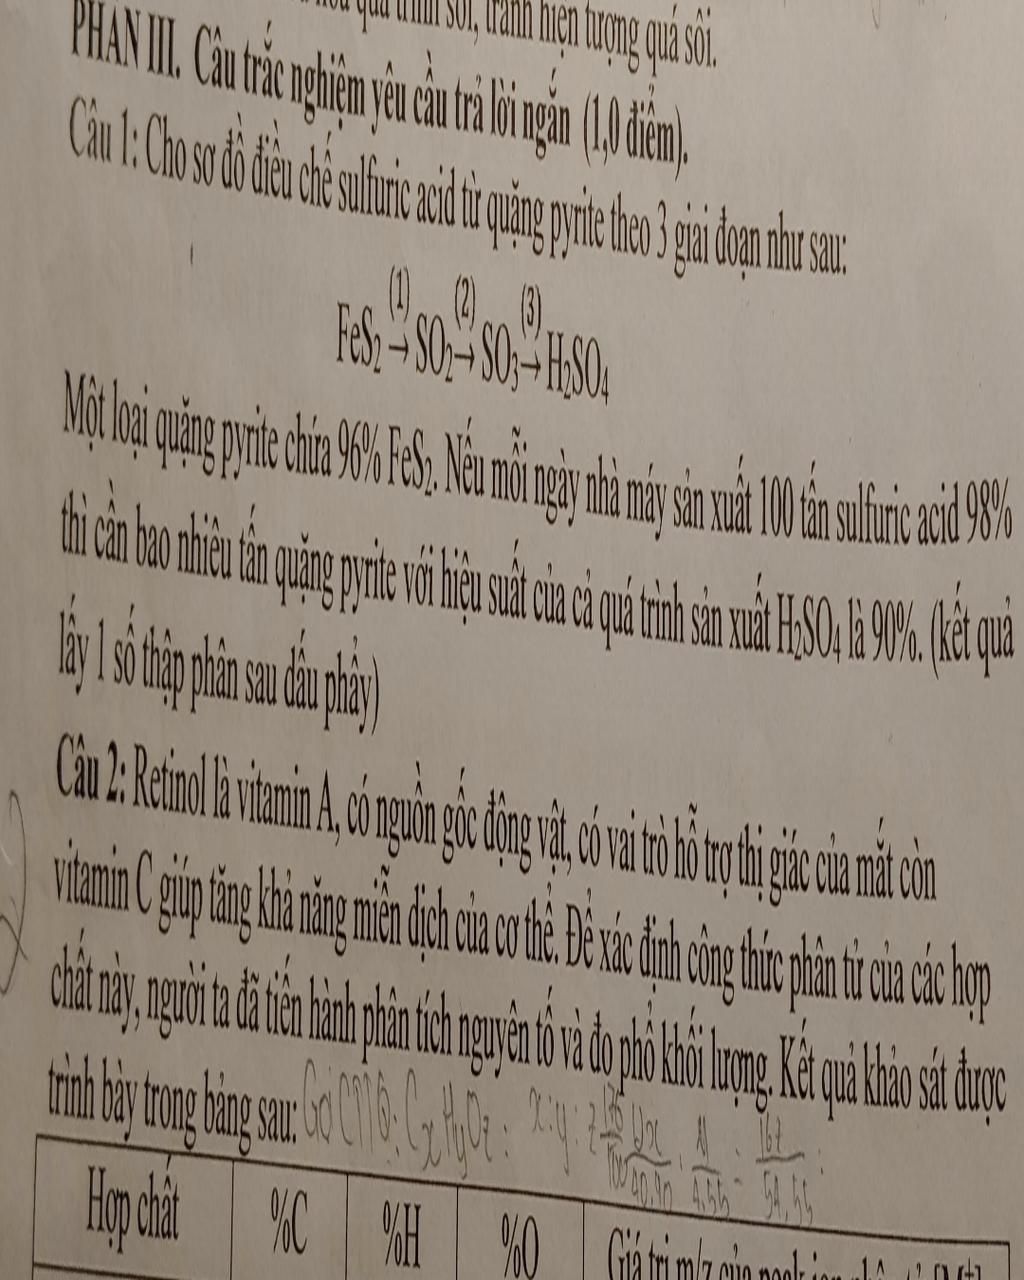 quá trình sôi, tránh hiện tượng quá sôi.
PHẦN III. Câu trắc nghiệm yêu cầu trả lời ngắn (1,0 điểm).
Câu 1: Cho sơ đồ điều chế sulfuric acid từ quặng pyrite theo 3 giai đoạn như sau:
(1) (2) (3)
FeS₂ → SO₂ → SO₃ → H₂SO₄
Một loại quặng pyrite chứa 96% FeS₂. Nếu mỗi ngày nhà máy sản xuất 100 tấn sulfuric acid 98%
thì cần bao nhiêu tấn quặng pyrite với hiệu suất của cả quá trình sản xuất H₂SO₄ là 90%. (kết quả
lấy 1 số thập phân sau dấu phẩy)
Câu 2: Retinol là vitamin A, có nguồn gốc động vật, có vai trò hỗ trợ thị giác của mắt còn
vitamin C giúp tăng khả năng miễn dịch của cơ thể. Để xác định công thức phân tử của các hợp
chất này, người ta đã tiến hành phân tích nguyên tố và đo phổ khối lượng. Kết quả khảo sát được
trình bày trong bảng sau: Gọi CTTQ: CxHyOz: x:y:z
40.90 4.55 54.55
Hợp chất %C %H %O Giá trị m/z của peak ion phân tử [M⁺]